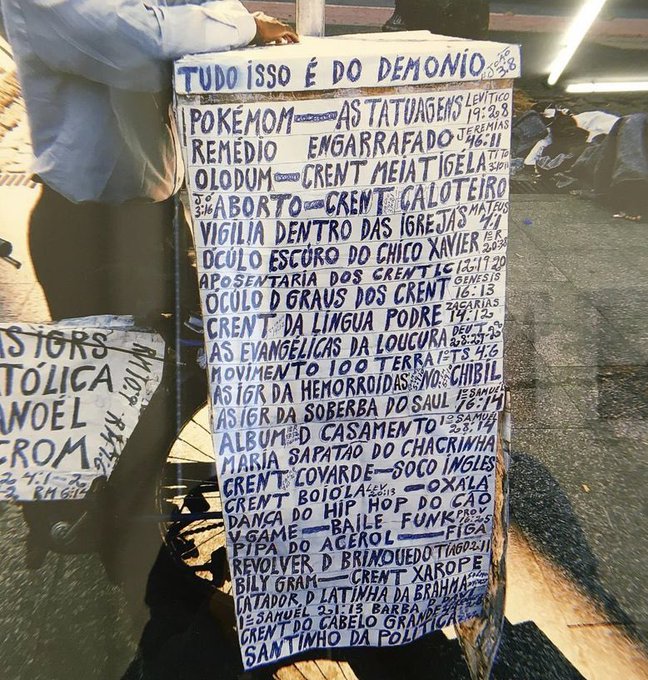 TUDO ISSO É DO DEMONIO JOÃO 3.8
POKEMOM — AS TATUAGENS LEVÍTICO 19:28
REMEDIO ENGARRAFADO JEREMIAS 46:11
OLODUM — CRENT MEIATIGELA TITO
JÓ 3:16 ABORTO — CRENT CALOTEIRO
VIGILIA DENTRO DAS IGREJAS MATEUS 4:1
OCÚLO ESCÚRO DO CHICO XAVIER 1º R
APOSENTARIA DOS CRENT LC 12:19 20
OCÚLO D GRAUS DOS CRENT GENESIS 16:13
CRENT DA LÍNGUA PODRE ZACARIAS 14:12
AS EVANGÉLICAS DA LOUCURA DEUT
MOVIMENTO 100 TERRA 1º TS 4:6
AS IGR DA HEMORROIDAS NO CHIBIL
AS IGR DA SOBERBA DO SAUL 1º SAMUEL 16:14
ALBUM D CASAMENTO 1º SAMUEL 28:14
MARIA SAPATÃO DO CHACRINHA
CRENT COVARDE — SOCO INGLES
CRENT BOIOLA LEV 20:13 — OXALÁ
DANÇA DO HIP HOP DO CÃO
V GAME — BAILE FUNK PROV 16:25
PIPA DO ACEROL — FIGA
REVOLVER D BRINQUEDO TIAGO 2:11
BILY GRAM — CRENT XAROPE
CATADOR D LATINHA DA BRAHMA
1º SAMUEL 21:13 BARBA D
CRENT DO CABELO GRANDE
SANTINHO DA POLITICA
AS IGRS
CATÓLICA
ANOÉL
CROM
RM 6:14